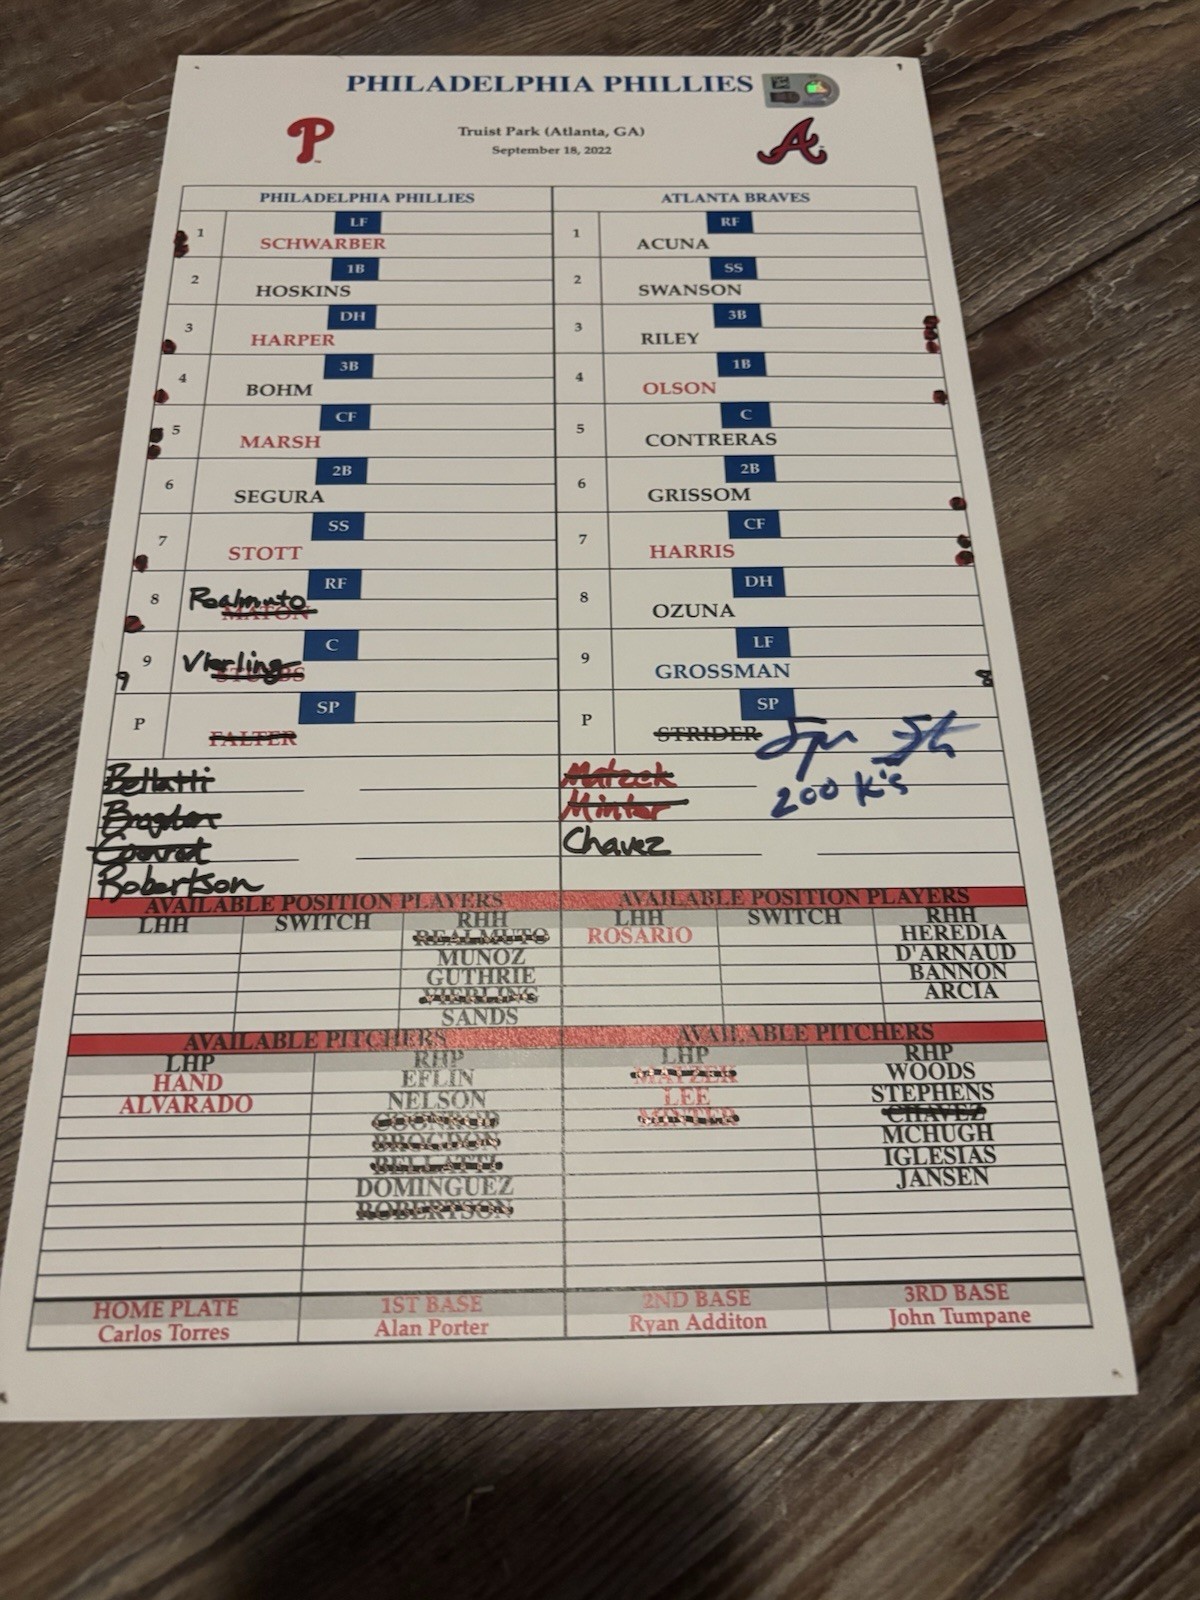 PHILADELPHIA PHILLIES
P
Truist Park (Atlanta, GA)
September 18, 2022
A
PHILADELPHIA PHILLIES ATLANTA BRAVES
LF RF
1 SCHWARBER 1 ACUNA
1B SS
2 HOSKINS 2 SWANSON
DH 3B
3 HARPER 3 RILEY
3B 1B
4 BOHM 4 OLSON
CF C
5 MARSH 5 CONTRERAS
2B 2B
6 SEGURA 6 GRISSOM
SS CF
7 STOTT 7 HARRIS
RF DH
8 Realmuto MATON 8 OZUNA
C LF
9 Vierling STUBBS 9 GROSSMAN
9 8
SP SP
P FALTER P STRIDER
Bellatti Matzek 200 K's
Brogdon Minter
Conrod Chavez
Robertson
AVAILABLE POSITION PLAYERS AVAILABLE POSITION PLAYERS
LHH SWITCH RHH LHH SWITCH RHH
REALMUTO ROSARIO HEREDIA
MUNOZ D'ARNAUD
GUTHRIE BANNON
VIERLING ARCIA
SANDS
AVAILABLE PITCHERS AVAILABLE PITCHERS
LHP RHP LHP RHP
HAND EFLIN MATZEK WOODS
ALVARADO NELSON LEE STEPHENS
COONROD MINTER CHAVEZ
BROGDON MCHUGH
BELLATTI IGLESIAS
DOMINGUEZ JANSEN
ROBERTSON
HOME PLATE 1ST BASE 2ND BASE 3RD BASE
Carlos Torres Alan Porter Ryan Additon John Tumpane